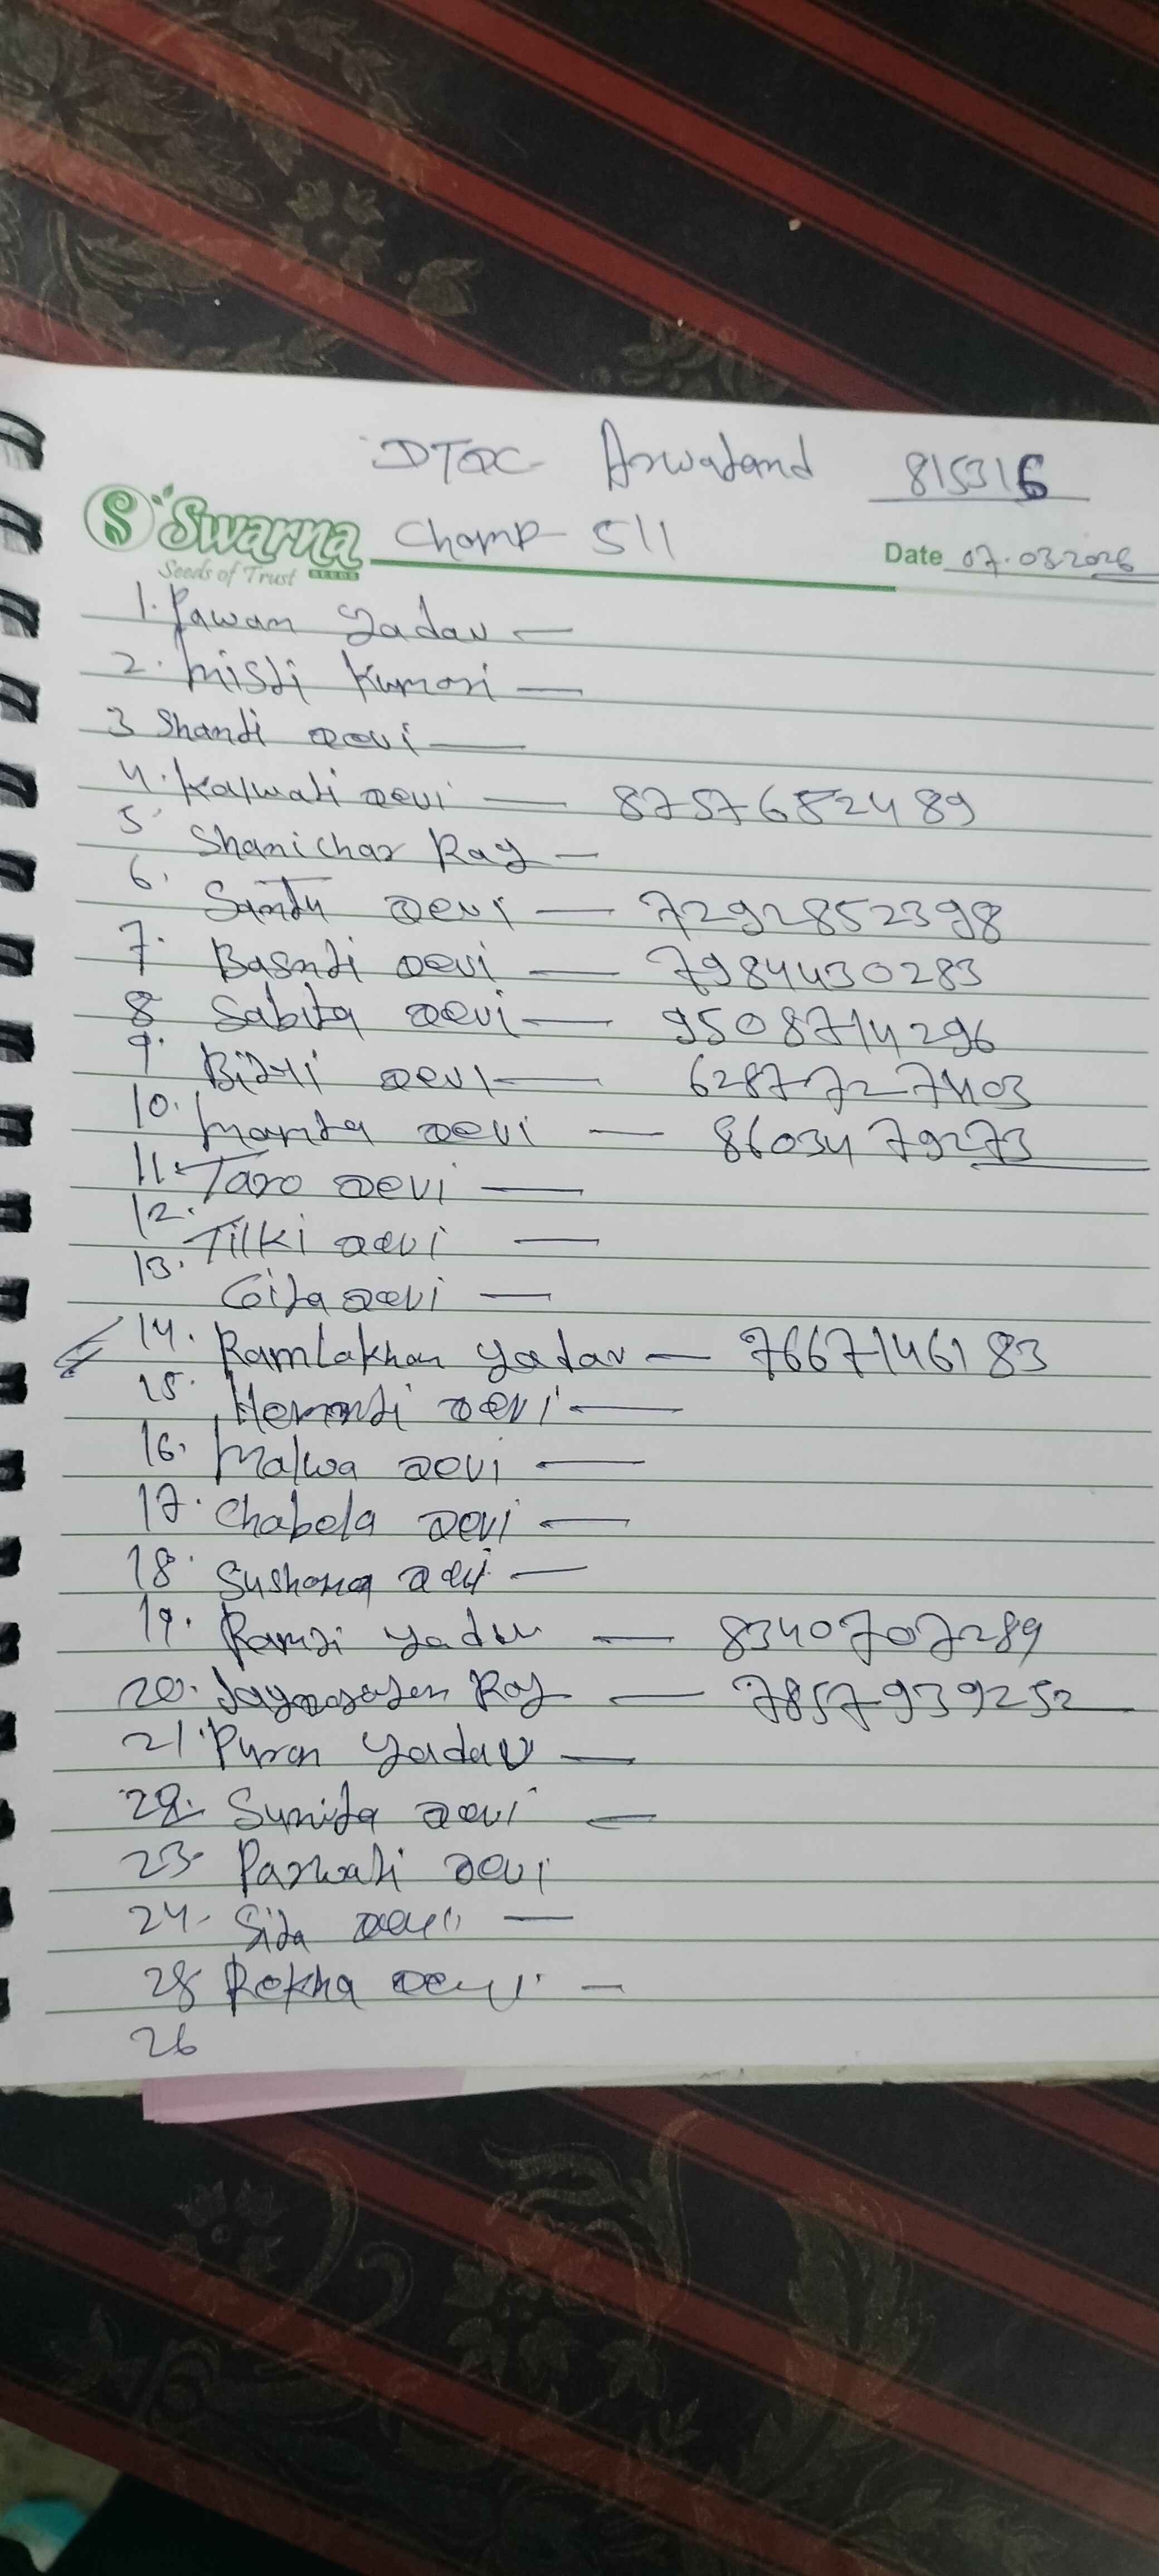 DTOC Arwatand 815316
Swarna Champ 511
Seeds of Trust SEEDS Date 07.03.2026
1. Pawan Yadav —
2. Misti Kumari —
3 Shanti Devi —
4. Kalwati Devi — 8757682489
5. Shanichar Ray —
6. Santu Devi — 7292852398
7. Basnti Devi — 7984430283
8 Sabita Devi — 9508714296
9. Devi — 6287727403
10. Manta Devi — 8603479273
11. Taro Devi —
12. Tilki Devi —
13. Gita Devi —
14. Ramlakhan Yadav — 7667146183
15. Hemanti Devi —
16. Malwa Devi —
17. Chabela Devi —
18. Devi —
19. Ramji Yadav — 8340707289
20. Ray — 7857939252
21. Puran Yadav —
22. Sunita Devi —
23. Parwati Devi
24. Sita Devi —
25 Rekha Devi —
26